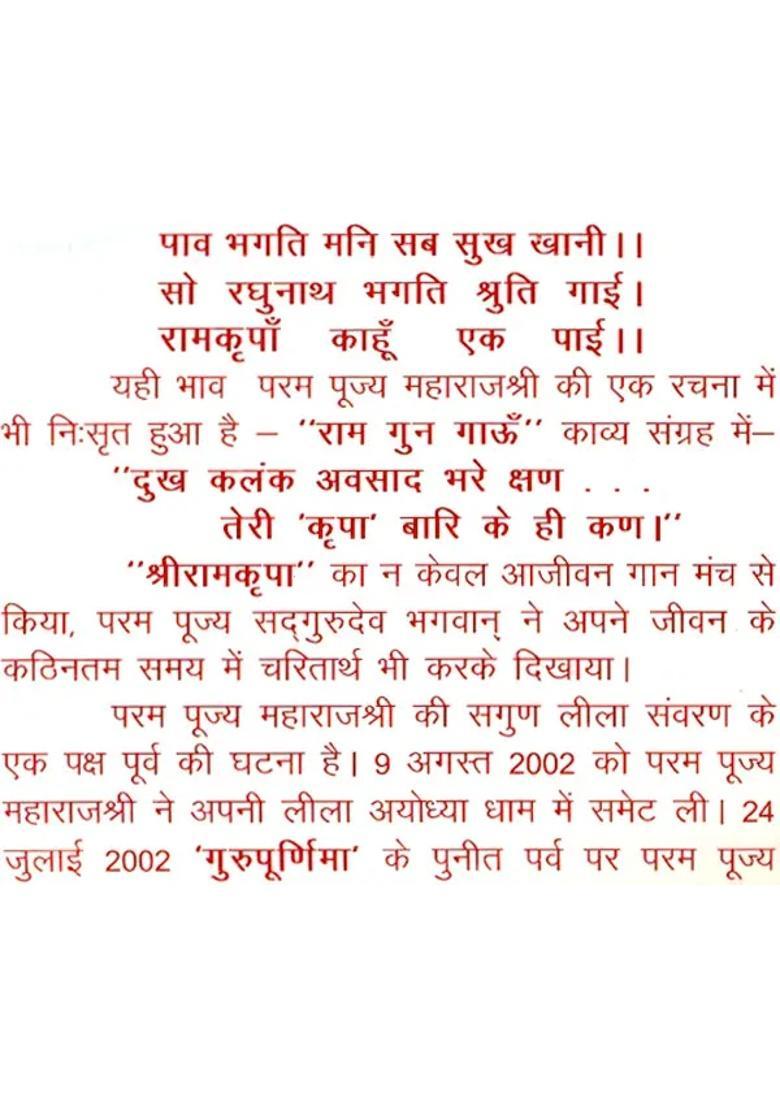 पाव भगति मनि सब सुख खानी।।
सो रघुनाथ भगति श्रुति गाई।
रामकृपाँ काहूँ एक पाई।।
यही भाव परम पूज्य महाराजश्री की एक रचना में
भी निःसृत हुआ है – ''राम गुन गाऊँ'' काव्य संग्रह में–
''दुख कलंक अवसाद भरे क्षण . . .
तेरी 'कृपा' बारि के ही कण।''
''श्रीरामकृपा'' का न केवल आजीवन गान मंच से
किया, परम पूज्य सद्‌गुरुदेव भगवान् ने अपने जीवन के
कठिनतम समय में चरितार्थ भी करके दिखाया।
परम पूज्य महाराजश्री की सगुण लीला संवरण के
एक पक्ष पूर्व की घटना है। 9 अगस्त 2002 को परम पूज्य
महाराजश्री ने अपनी लीला अयोध्या धाम में समेट ली। 24
जुलाई 2002 'गुरुपूर्णिमा' के पुनीत पर्व पर परम पूज्य